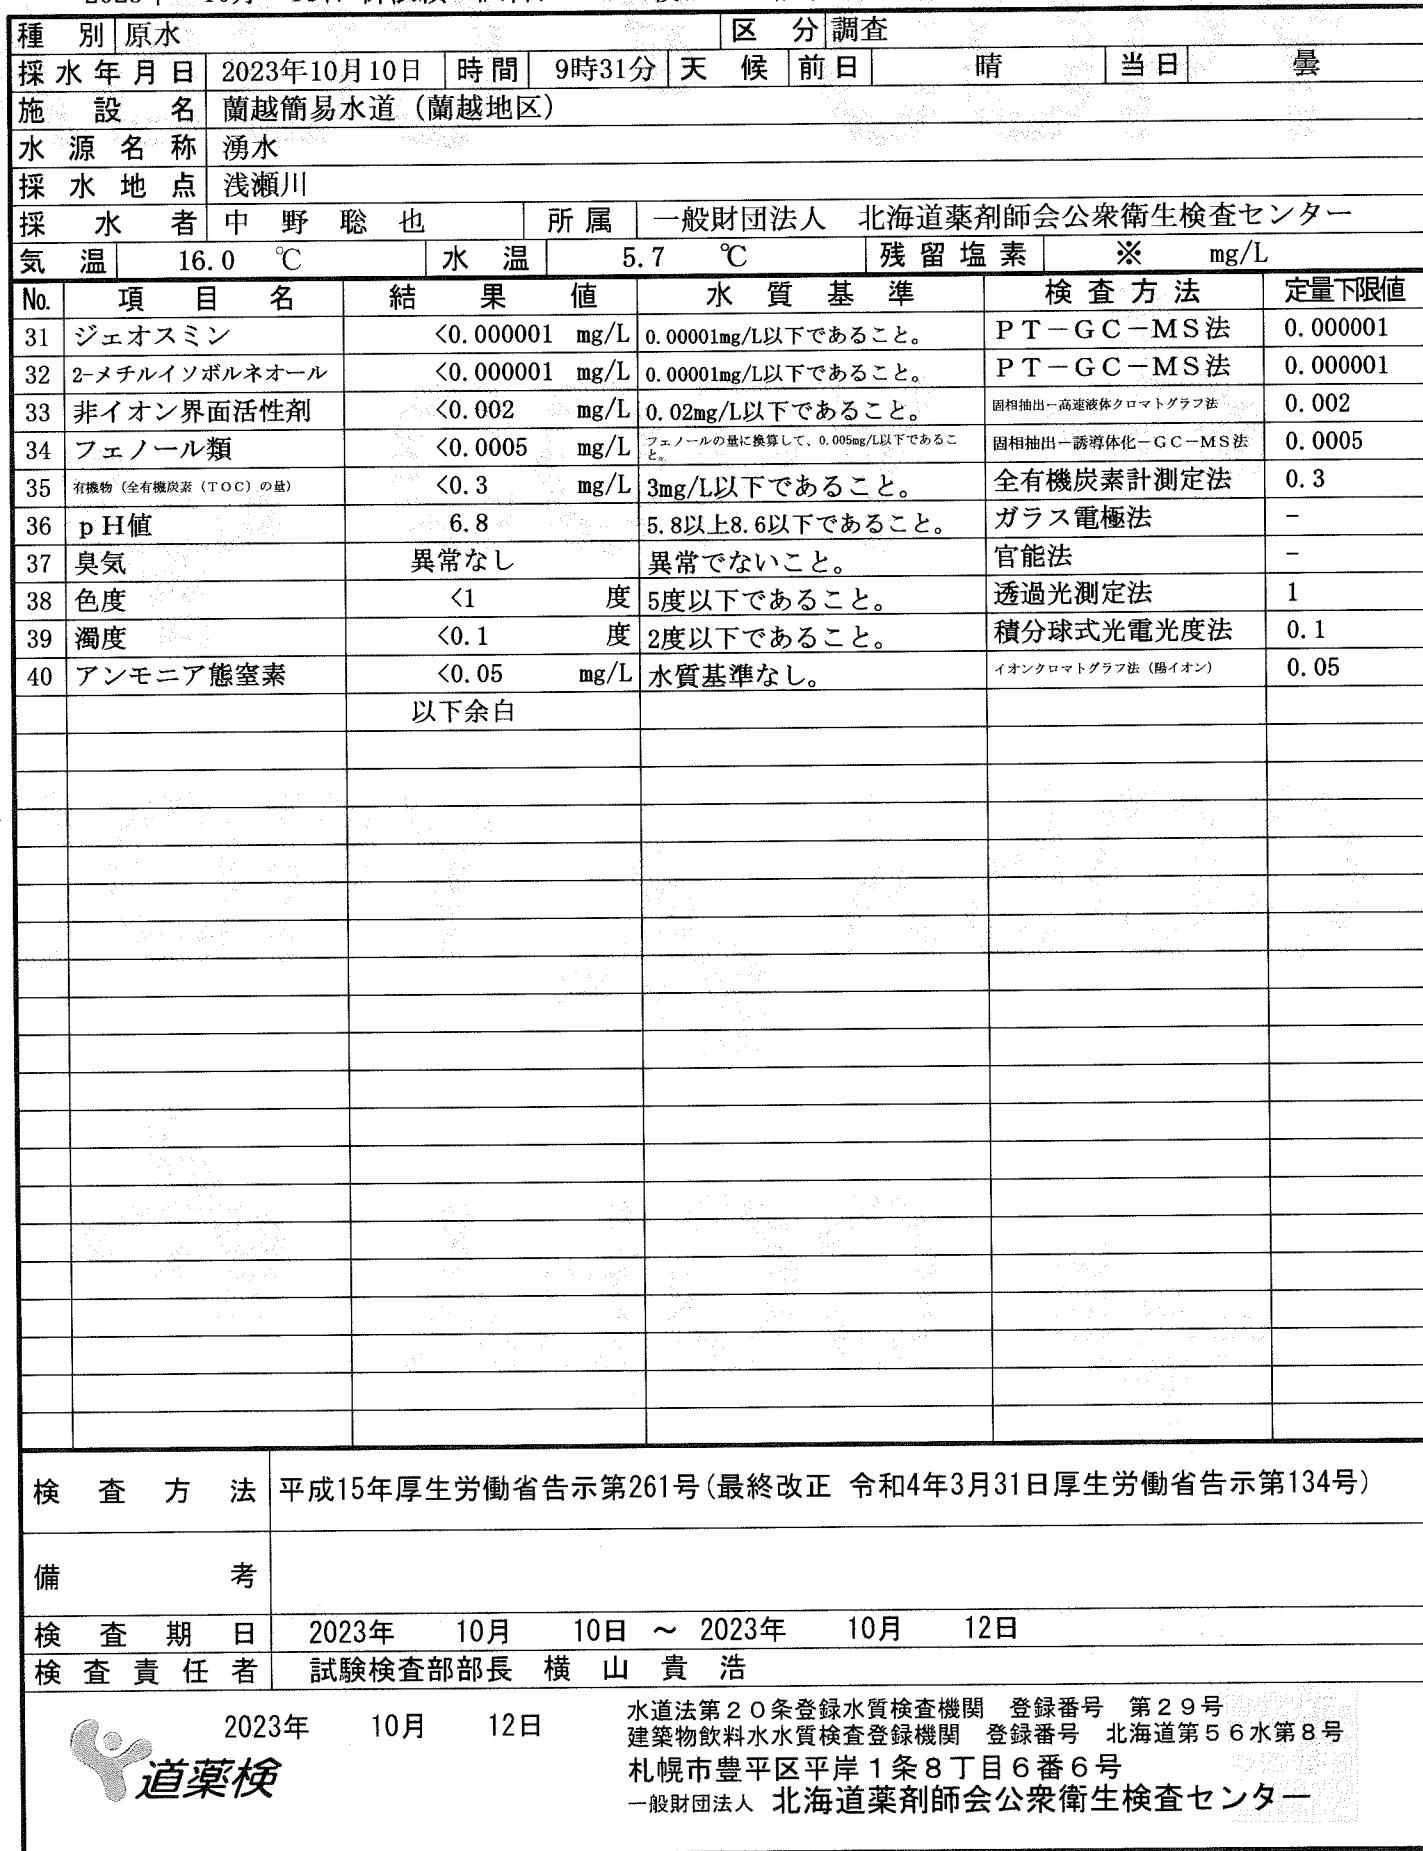 種別 原水 区分 調査
採水年月日 2023年10月10日 時間 9時31分 天候 前日 晴 当日 曇
施設名 蘭越簡易水道（蘭越地区）
水源名称 湧水
採水地点 浅瀬川
採水者 中野聡也 所属 一般財団法人 北海道薬剤師会公衆衛生検査センター
気温 16.0 ℃ 水温 5.7 ℃ 残留塩素 ※ mg/L
No. 項目名 結果値 水質基準 検査方法 定量下限値
31 ジェオスミン <0.000001 mg/L 0.00001mg/L以下であること。 ＰＴ－ＧＣ－ＭＳ法 0.000001
32 2-メチルイソボルネオール <0.000001 mg/L 0.00001mg/L以下であること。 ＰＴ－ＧＣ－ＭＳ法 0.000001
33 非イオン界面活性剤 <0.002 mg/L 0.02mg/L以下であること。 固相抽出－高速液体クロマトグラフ法 0.002
34 フェノール類 <0.0005 mg/L フェノールの量に換算して、0.005mg/L以下であること。 固相抽出－誘導体化－ＧＣ－ＭＳ法 0.0005
35 有機物（全有機炭素（ＴＯＣ）の量） <0.3 mg/L 3mg/L以下であること。 全有機炭素計測定法 0.3
36 ｐＨ値 6.8 5.8以上8.6以下であること。 ガラス電極法 －
37 臭気 異常なし 異常でないこと。 官能法 －
38 色度 <1 度 5度以下であること。 透過光測定法 1
39 濁度 <0.1 度 2度以下であること。 積分球式光電光度法 0.1
40 アンモニア態窒素 <0.05 mg/L 水質基準なし。 イオンクロマトグラフ法（陽イオン） 0.05
以下余白
検査方法 平成15年厚生労働省告示第261号(最終改正 令和4年3月31日厚生労働省告示第134号)
備考
検査期日 2023年 10月 10日 ～ 2023年 10月 12日
検査責任者 試験検査部部長 横山貴浩
2023年 10月 12日
道薬検
水道法第２０条登録水質検査機関 登録番号 第２９号
建築物飲料水水質検査登録機関 登録番号 北海道第５６水第８号
札幌市豊平区平岸１条８丁目６番６号
一般財団法人 北海道薬剤師会公衆衛生検査センター